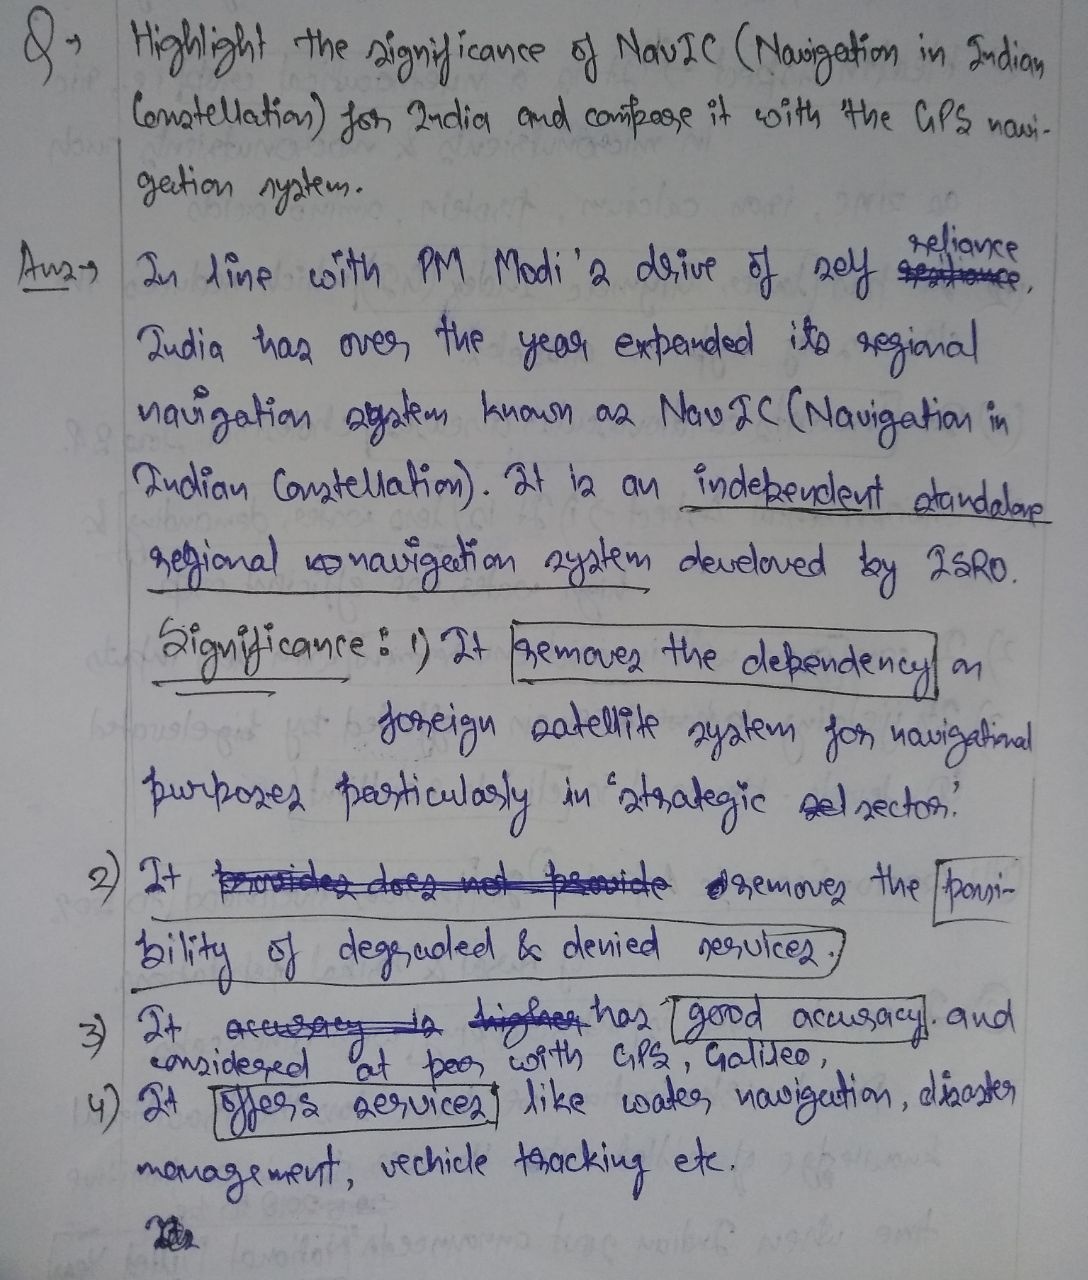 Q→ Highlight the significance of NavIC (Navigation in Indian
Constellation) for India and compare it with the GPS navi-
gation system.
Ans→ In line with PM Modi's drive of self reliance,
India has over the year expanded its regional
navigation system known as NavIC (Navigation in
Indian Constellation). It is an independent standalone
regional navigation system develoved by ISRO.
Significance: 1) It removes the dependency on
foreign satellite system for navigational
purposes particularly in 'strategic sector.'
2) It provides does not provide removes the possi-
bility of degraded & denied services.
3) It accuracy is higher has good accuracy. and
considered at par with GPS, Galileo,
4) It offers services like water navigation, disaster
management, vechicle tracking etc.